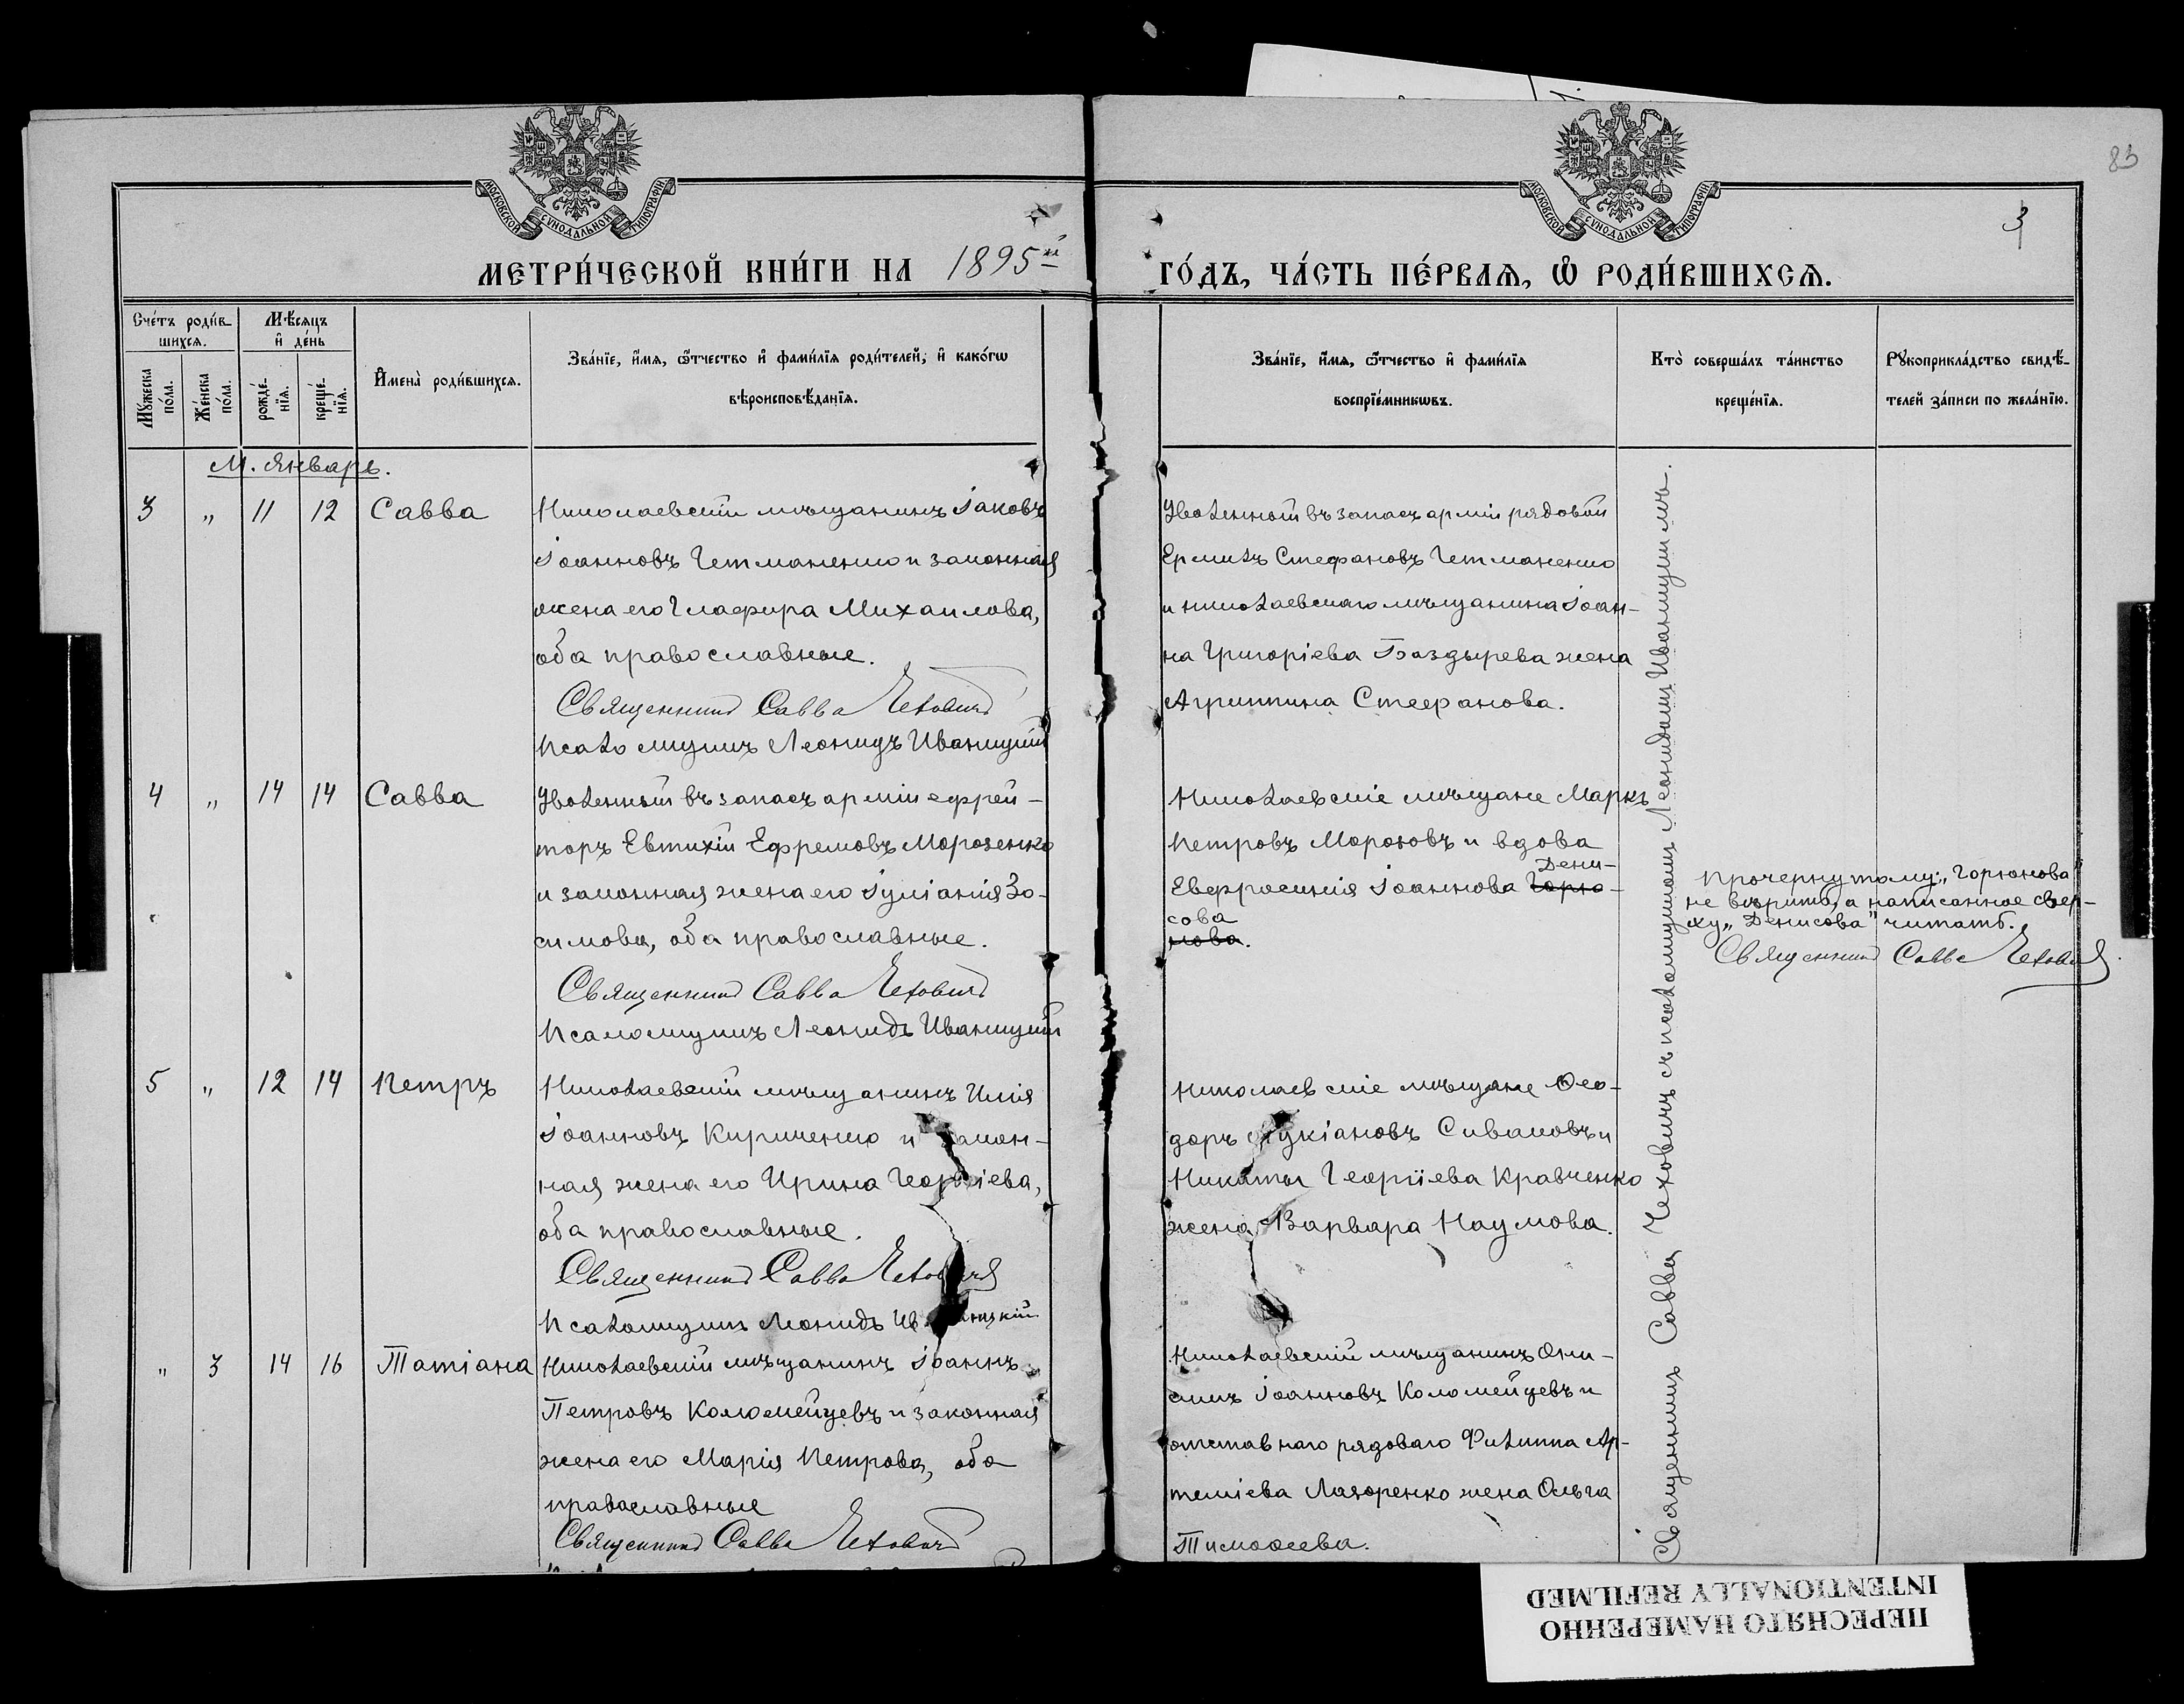 83
3
МОСКОВСКОЙ СУНОДАЛЬНОЙ ТИПОГРАФІИ
МОСКОВСКОЙ СУНОДАЛЬНОЙ ТИПОГРАФІИ
МЕТРИ́ЧЕСКОЙ КНИ́ГИ НА 1895й
ГО́ДЪ, ЧА́СТЬ ПЕ́РВАѦ, Ѡ҆ РОДИ́ВШИХСѦ.
Сче́тъ роди́в-
шихсѧ.
Мꙋ́жеска
по́ла.
Же́нска
по́ла.
Мѣ́сѧцъ
и҆ де́нь
рожде́-
нїѧ.
креще́-
нїѧ.
И҆мена̀ роди́вшихсѧ.
Зва́нїе, и҆́мѧ, ѻ҆́тчество и҆ фами́лїѧ роди́телей, и҆ како́гѡ
вѣроисповѣ́данїѧ.
Зва́нїе, и҆́мѧ, ѻ҆́тчество и҆ фами́лїѧ
воспрїе́мникѡвъ.
Кто̀ соверша́лъ та́инство
креще́нїѧ.
Рꙋкоприкла́дство свидѣ́-
телей за́писи по жела́нїю.
М. Январь.
3 „ 11 12 Савва
Николаевскій мѣщанинъ Іаковъ
Іоанновъ Гетманенко и законная
жена его Глафира Михаилова,
оба православные.
Священникъ Савва Чеховичъ
Псаломщикъ Леонидъ Иваницкій
Уволенный въ запасъ арміи рядовой
Ермилъ Стефановъ Гетманенко
и николаевскаго мѣщанина Іоан-
на Григоріева Баздырева жена
Агриппина Стефанова.
4 „ 14 14 Савва
Уволенный въ запасъ арміи ефрей-
торъ Евтихій Ефремовъ Морозенко
и законная жена его Іуліанія Зо-
симова, оба православные.
Священникъ Савва Чеховичъ
Псаломщикъ Леонидъ Иваницкій
Николаевскіе мѣщане Маркъ
Петровъ Морозовъ и вдова
Дени-
Евфросинія Іоаннова Горю-
сова
нова.
Прочеркнутому: „Горюнова"
не вѣрить, а написанное свер-
ху „Денисова" читать.
Священникъ Савва Чеховичъ.
5 „ 12 14 Петръ
Николаевскій мѣщанинъ Илія
Іоанновъ Кириченко и закон-
ная жена его Ирина Георгіева,
оба православные.
Священникъ Савва Чеховичъ
Псаломщикъ Леонидъ Иваницкій
Николаевскіе мѣщане Ѳео-
доръ Лукіановъ Сиваковъ и
Никиты Георгіева Кравченко
жена Варвара Наумова.
„ 3 14 16 Татіана
Николаевскій мѣщанинъ Іоаннъ
Петровъ Коломейцевъ и законная
жена его Марія Петрова, оба
православные
Священникъ Савва Чеховичъ
Николаевскій мѣщанинъ Они-
симъ Іоанновъ Коломейцевъ и
отставнаго рядоваго Филиппа Ар-
теміева Лазоренко жена Ольга
Тимоѳеева.
Священникъ Савва Чеховичъ съ псаломщикомъ Леонидомъ Иваницкимъ.
ПЕРЕСНЯТО НАМЕРЕННО
INTENTIONALLY REFILMED